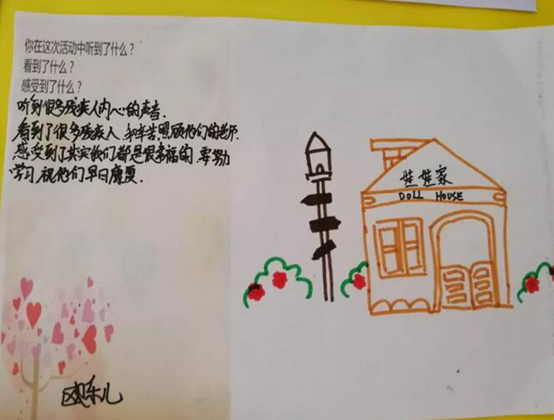 你在这次活动中听到了什么？
看到了什么？
感受到了什么？
听到很多残疾人内心的声音.
看到了很多残疾人、和辛苦照顾他们的老师.
感受到了其实我们都是很幸福的.要努力
学习.祝他们早日康复.
娃娃家
DOLL HOUSE